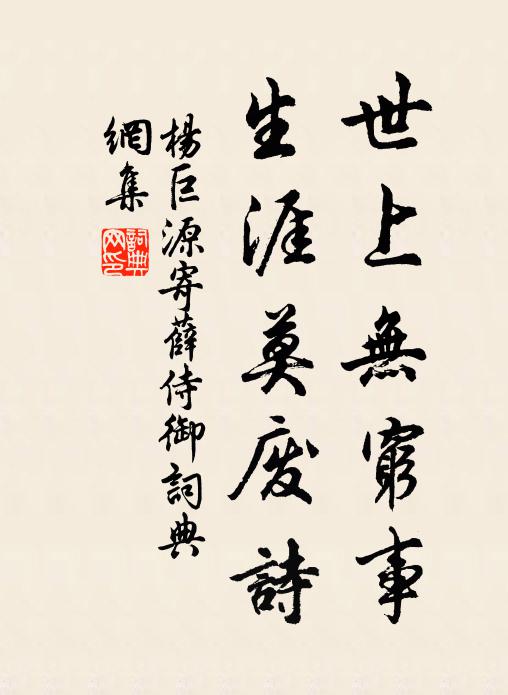 世上無窮事
生涯莫废詩
楊巨源寄薛侍御詞典
網集
詞典網印